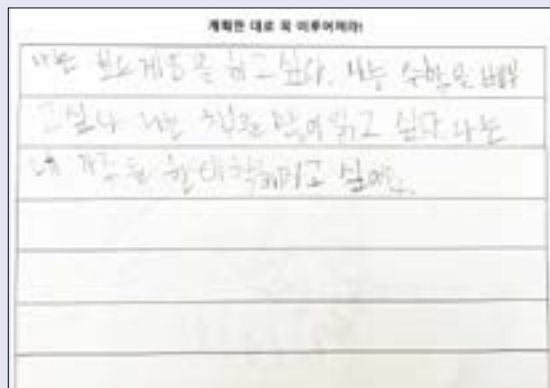 계획한 대로 꼭 이루어져라!
나는 보드게임을 하고 싶다. 나는 수학을 배우
고싶다 나는 책을 많이 읽고 싶다 나는
내 가족을 싶어.